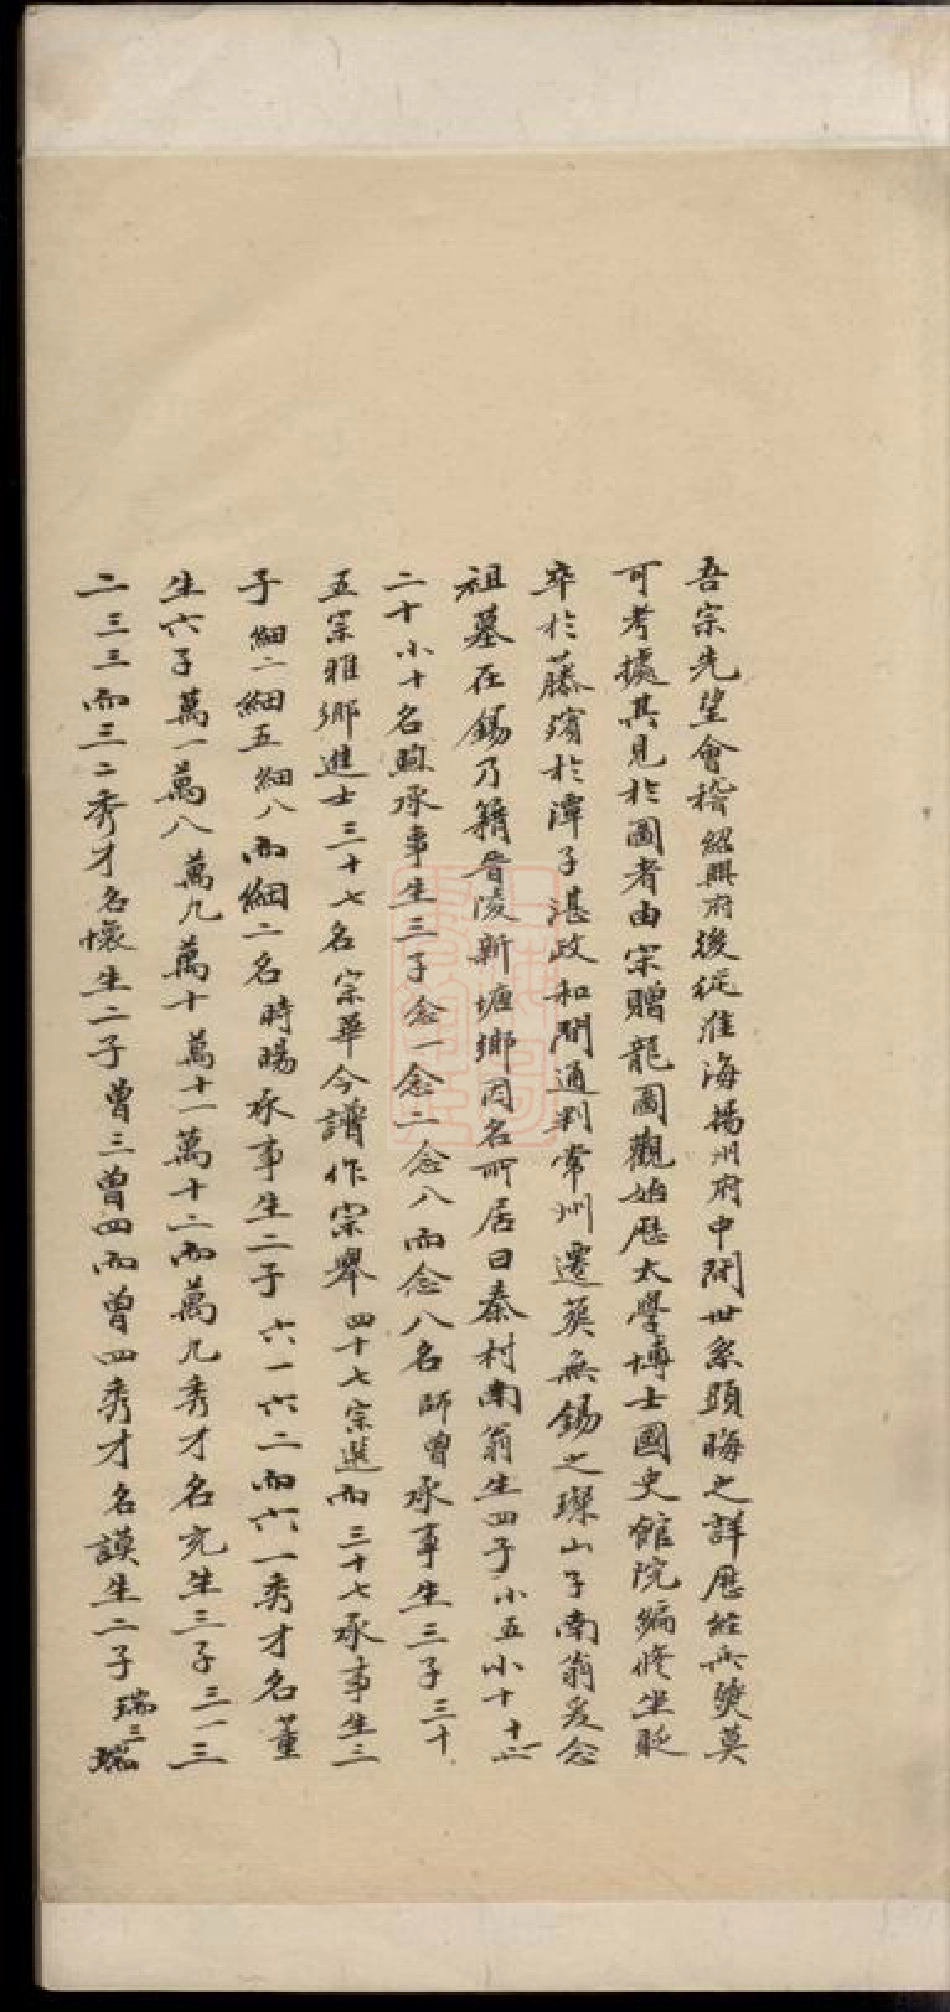 吾宗先望會稽紹興府後從淮海揚州府中間世系顕晦之詳歷經兵燹莫
可考據其見於圖者由宋贈龍圖觀始歷大學博士國史館院編修坐貶
卒於藤殯於潭子湛政和間通判常州遷葬無錫之璨山子南翁爰念
祖墓在錫乃籍晋陵新塘鄉因名所居曰秦村南翁生四子小五小十十六
二十小十名煦承事生三子念一念二念八而念八名師曾承事生三子三十
五宗雅鄉進士三十七名宗華今譜作宗舉四十七宗進而三十七承事生三
子細二細五細八而細二名時暘承事生二子六一六二而六一秀才名董
生六子萬一萬八萬九萬十萬十一萬十二而萬九秀才名充生三子三一三
二三三而三二秀才名懷生二子曾三曾四而曾四秀才名謨生二子瑞三瑞